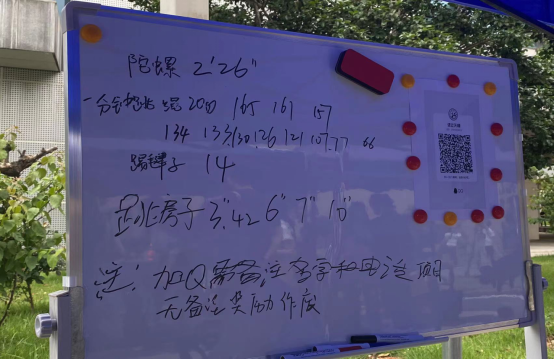 陀螺 2'26"
一分钟跳绳 200 165 161 157
134 133 130 126 121 107 77 66
踢毽子 14
跳房子 3".42 6" 7" 10"
注: 加Q需备注名字和电话项目
无备注奖励作废